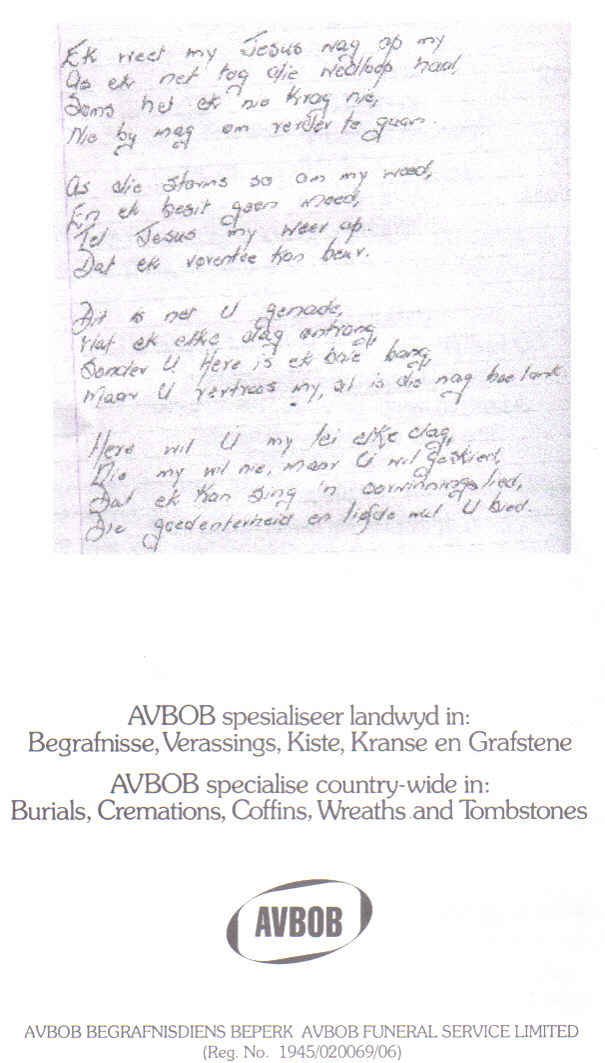 Ek weet my Jesus wag op my
As ek net tog die wedloop haal,
Soms het ek nie krag nie,
Nie by mag om verder te gaan.
As die storms so om my woed,
En ek besit geen moed,
Tel Jesus my weer op.
Dat ek vorentoe kan beur.
Dit is net U genade,
Wat ek elke dag ontvang,
Sonder U Here is ek baie bang,
Maar U vertroos my, al is die nag hoe lank.
Here wil U my lei elke dag,
Nie my wil nie, maar U wil geskied,
Dat ek kan sing 'n oorwinningslied,
Die goedentierheid en liefde wat U bied.
AVBOB spesialiseer landwyd in:
Begrafnisse, Verassings, Kiste, Kranse en Grafstene
AVBOB specialise country-wide in:
Burials, Cremations, Coffins, Wreaths and Tombstones
AVBOB
AVBOB BEGRAFNISDIENS BEPERK AVBOB FUNERAL SERVICE LIMITED
(Reg. No. 1945/020069/06)